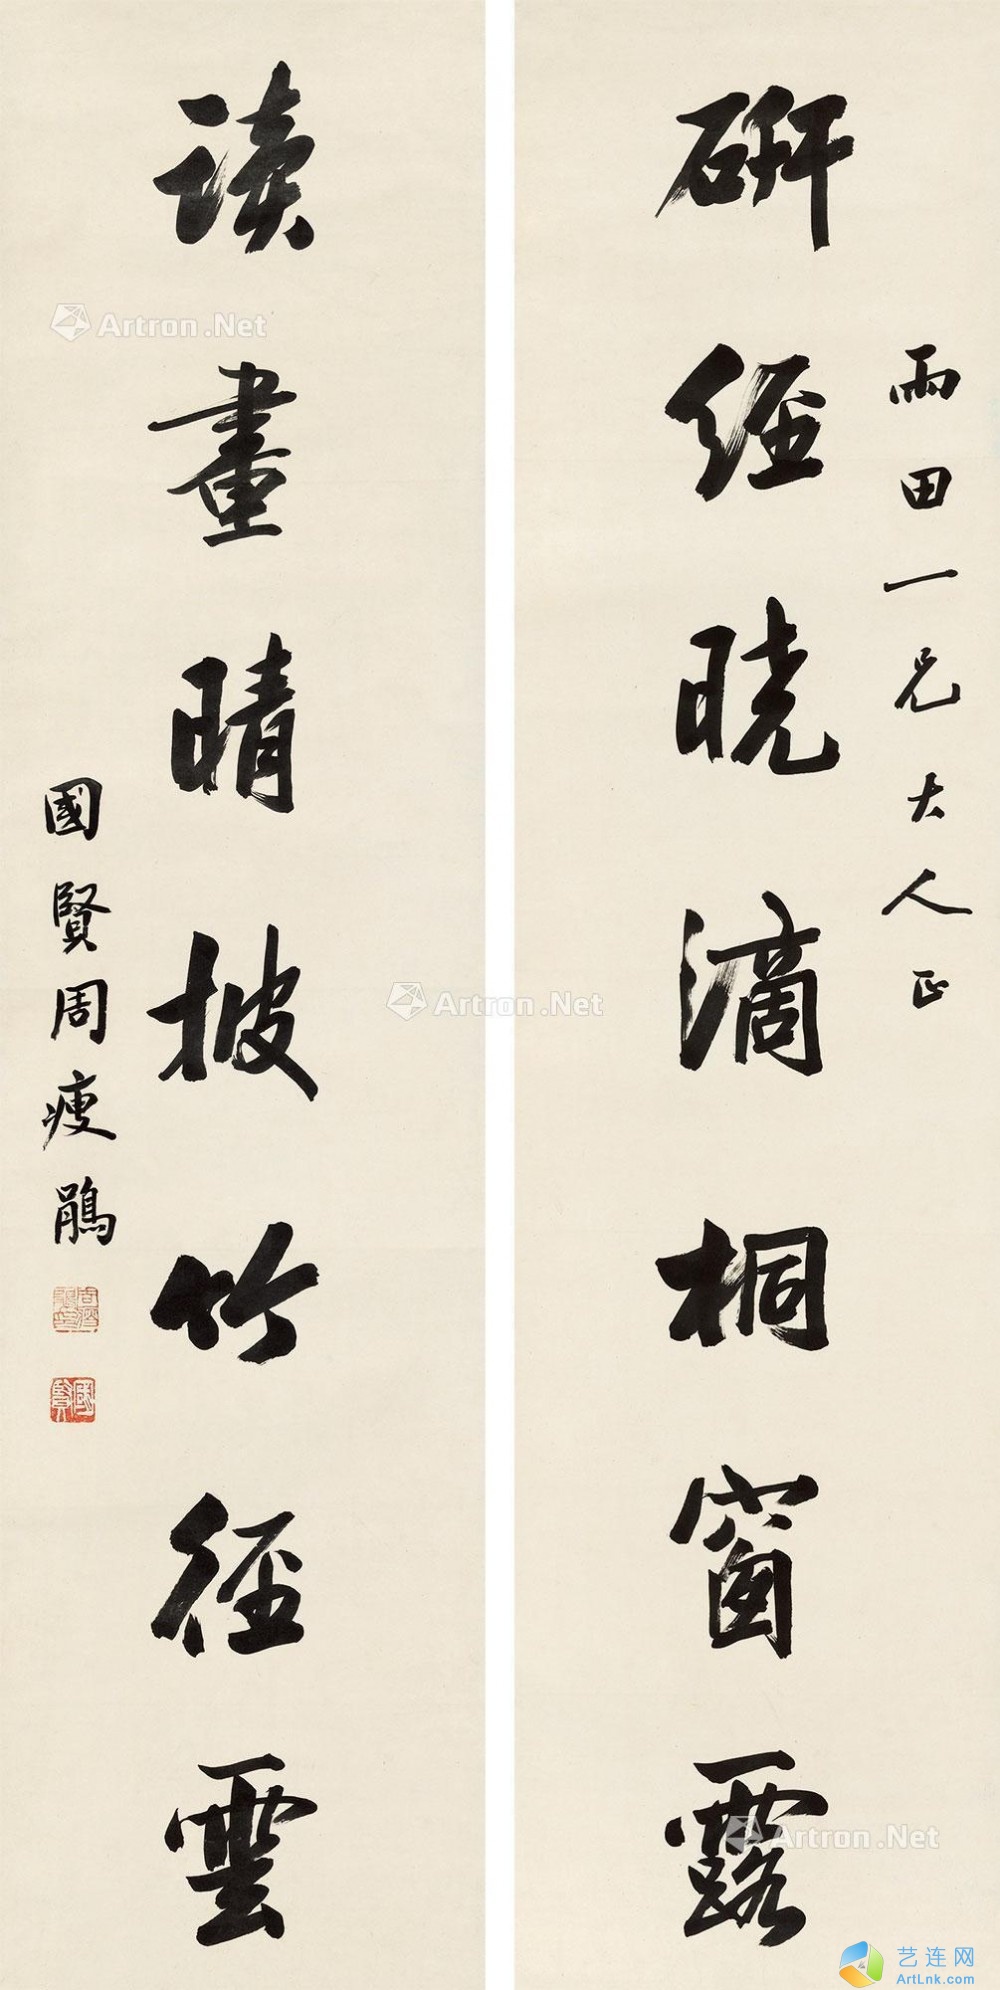 雨田一兄大人正
研經曉滴桐窗露
讀畫晴披竹徑雲
國賢周瘦鵑
國賢
Artron.Net
Artron.Net
Artron.Net
艺连网
ArtLnk.com